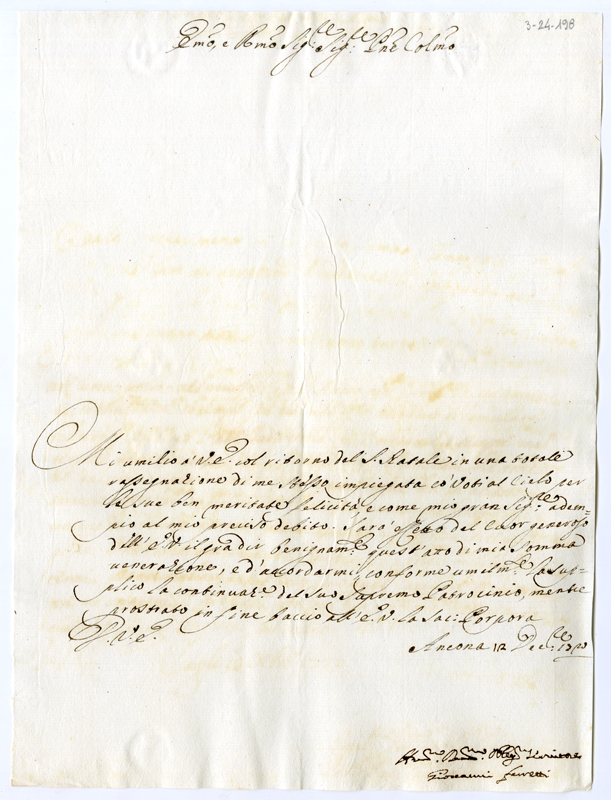 3-24-198
Emo, e Rmo Sigre Sigre Pne Colmo
Mi umilio à V.E. col ritorno del S. Natale in una totale
rassegnazione di me stesso impiegata co' voti al Cielo per
le sue ben meritate felicità, e come mio gran Sigre adem=
pio al mio preciso debito. Sarà effetto del Cuor generoso
dell'E.V. il gradir benignamte quest'atto di mia somma
venerazione, e d'accordarmi, conforme umilmte la sup=
plico la continuaze del suo supremo Patrocinio, mentre
prostrato in fine baccio all'E.V. la Sac: Porpora
D. V.E.
Ancona 12 Decre
Giovanni Ferretti